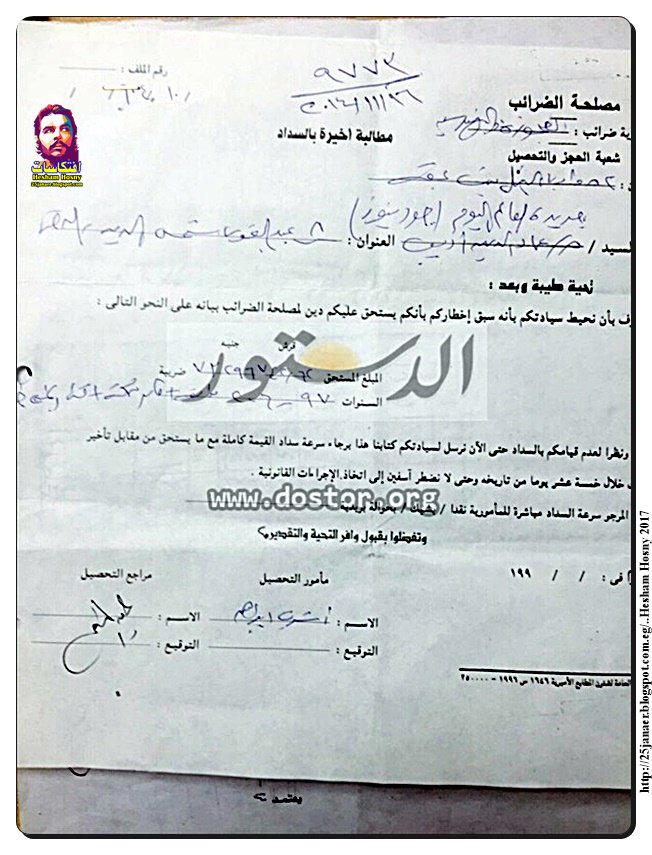 رقم الملف :
٩٧٧٣
٢٠١٤/١١/٢٦
مصلحة الضرائب
ية ضرائب :
مطالبة أخيرة بالسداد
شعبة الحجز والتحصيل
افتكاسات
Hesham Hosny
25janaer.blogspot.com
جريدة العالم اليوم (جود نيوز)
لسيد / عماد الدين أديب العنوان :
تحية طيبة وبعد :
رف بأن نحيط سيادتكم بأنه سبق إخطاركم بأنكم يستحق عليكم دين لمصلحة الضرائب بيانه على النحو التالى :
قرش جنيه
الدستور
المبلغ المستحق ضريبة
السنوات ٩٧ -
ونظرا لعدم قيامكم بالسداد حتى الآن نرسل لسيادتكم كتابنا هذا برجاء سرعة سداد القيمة كاملة مع ما يستحق من مقابل تأخير
خلال خمسة عشر يوما من تاريخه وحتى لا نضطر آسفين إلى اتخاذ الإجراءات القانونية .
www.dostor.org
المرجو سرعة السداد مباشرة للمأمورية نقدا / بشيك / بحوالة بريدية
وتفضلوا بقبول وافر التحية والتقدير ،
فى : / / ١٩٩
مأمور التحصيل مراجع التحصيل
الاسم : أشرف ابراهيم الاسم :
التوقيع : التوقيع :
العامة لشئون المطابع الأميرية ١٦٤٦ س ١٩٩٦ - ٢٥٠٠٠٠
يعتمد
http://25janaer.blogspot.com.eg/..Hesham Hosny 2017